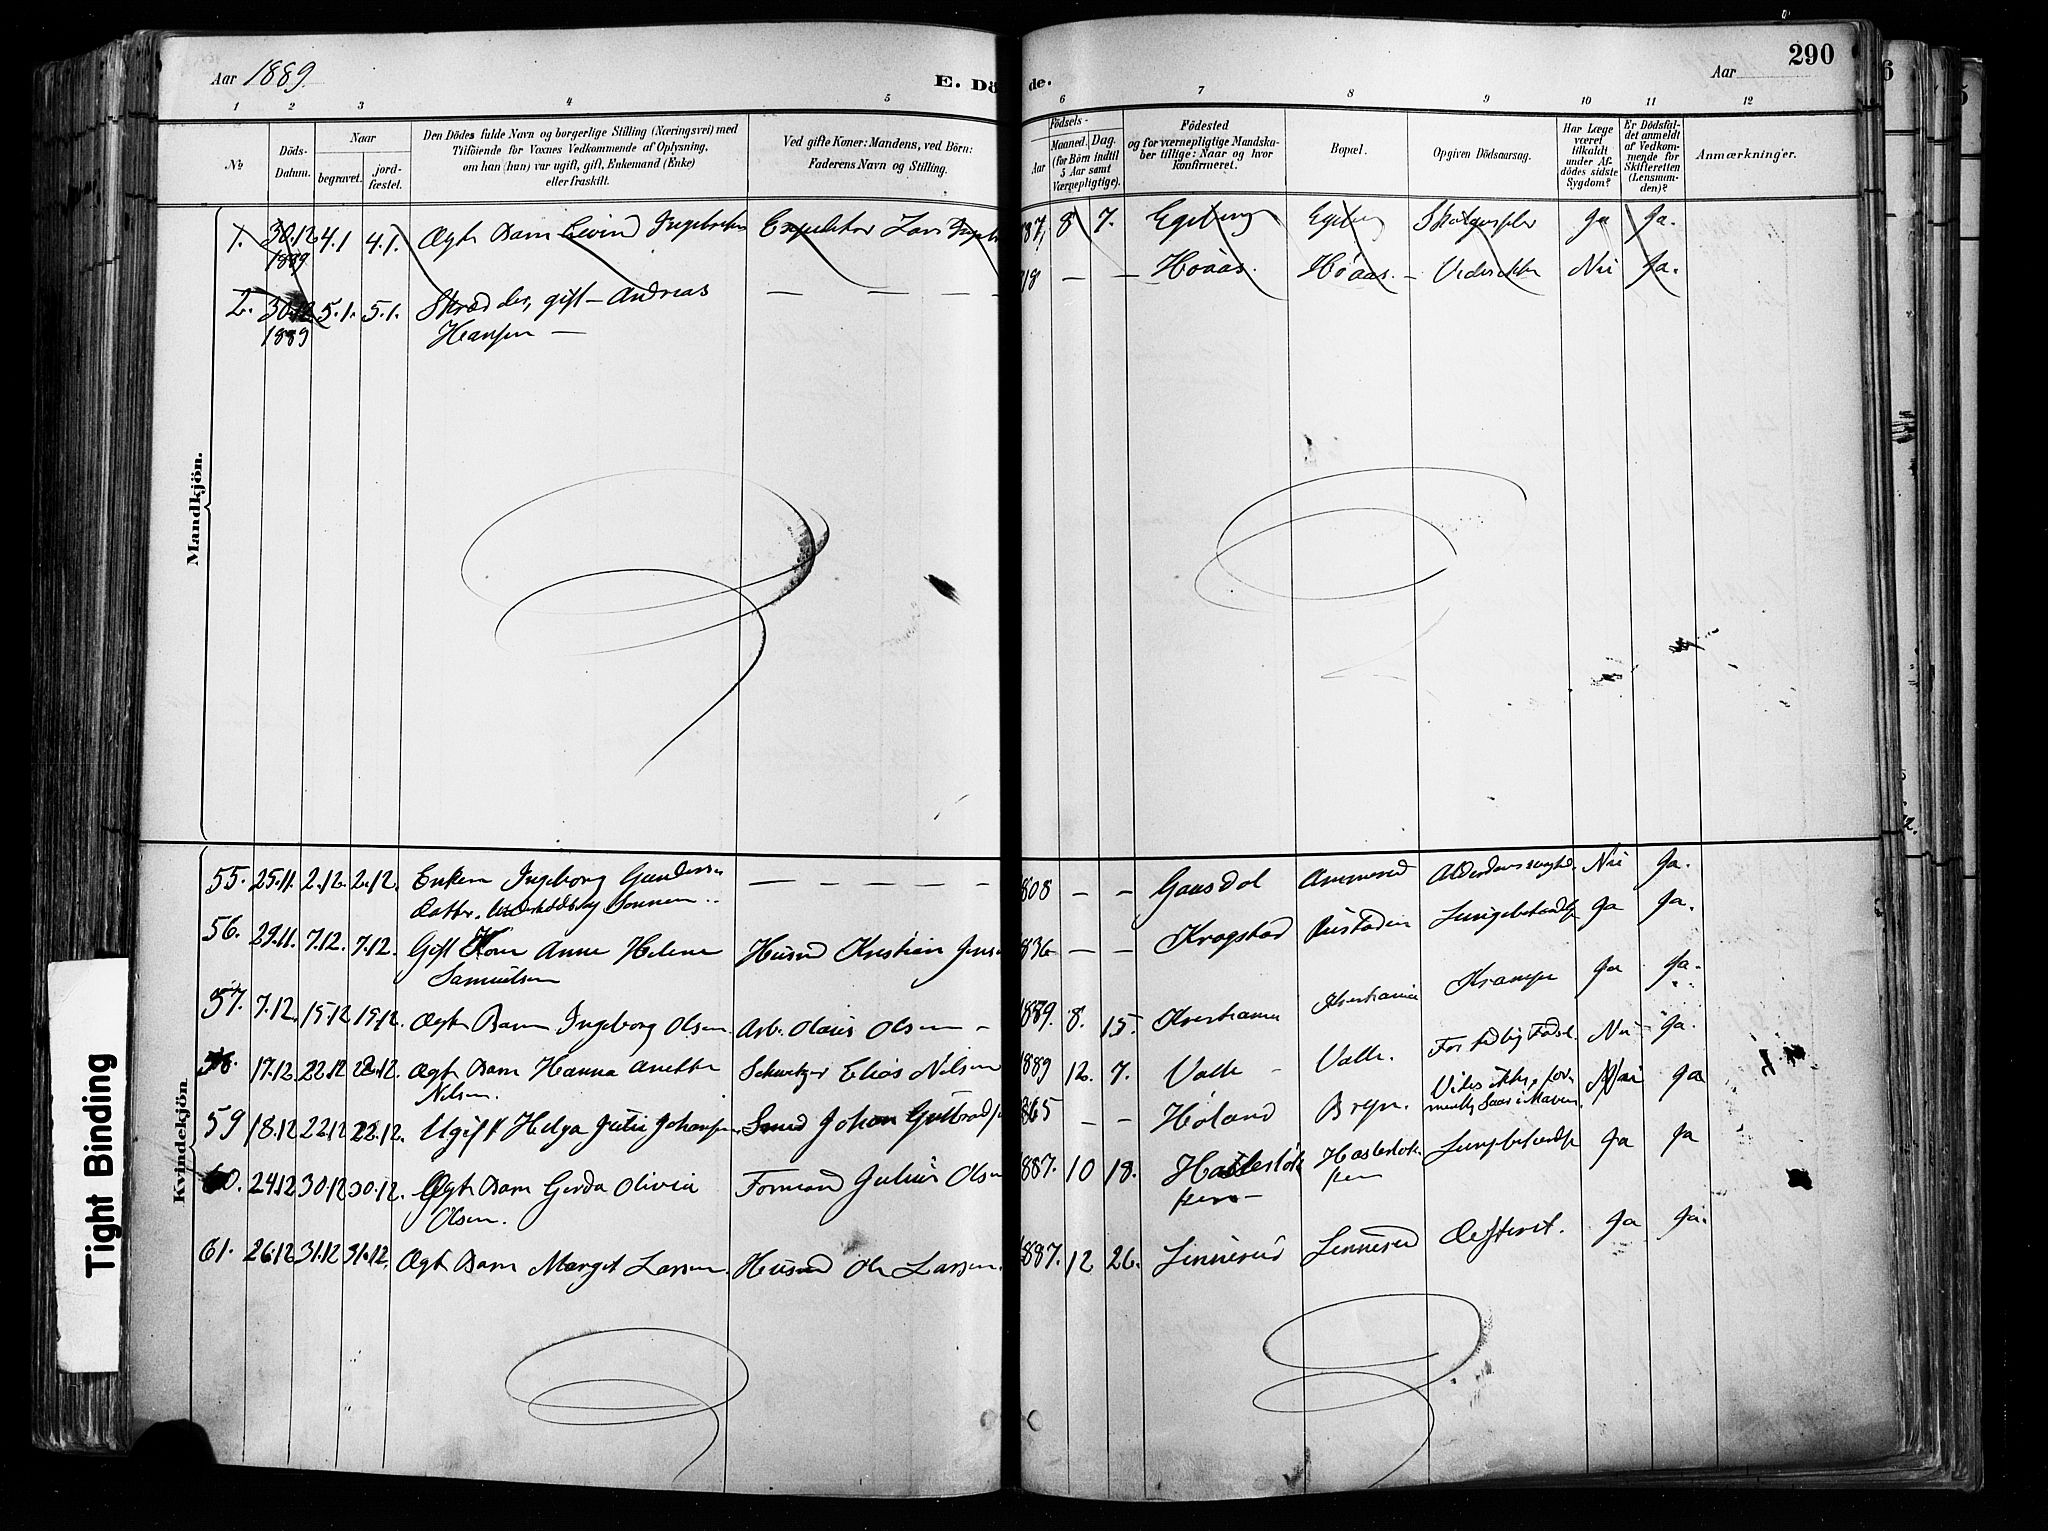 Aar 1889.
E. Dö
de.
Aar
290
1 2 3 4 5 6 7 8 9 10 11 12
No
Döds-Datum.
Naar
begravet.
jord-fæstet.
Den Dödes fulde Navn og borgerlige Stilling (Næringsvei) med
Tilföiende for Voxnes Vedkommende af Oplysning,
om han (hun) var ugift, gift, Enkemand (Enke)
eller fraskilt.
Ved gifte Koner: Mandens, ved Börn:
Faderens Navn og Stilling.
Födsels-
Aar
Maaned. Dag.
(for Börn indtil
5 Aar samt
Værnepligtige).
Födested
og for værnepligtige Mandska-
ber tillige: Naar og hvor
konfirmeret.
Bopæl.
Opgiven Dödsaarsag.
Har Læge
været
tilkaldt
under Af-
dödes sidste
Sygdom?
Er Dödsfal-
det anmeldt
af Vedkom-
mende for
Skifteretten
(Lensman-
den)?
Anmærkninger.
Mandkjön.
1. 30.12 4.1 4.1. Ægte Barn Eivind 87 8 7. Egeberg Egeberg Ja Ja.
1889
2. 30.12 5.1. 5.1. Skrædder, gift – Andreas — — — 18 — — Høaas. Høaas. – Vides ikke Nei Ja.
1889 Hansen —
Kvindekjön.
55. 25.11. 2.12. 2.12. Enken Ingeborg Gunders — — — — — 808 — — Gausdal Aldersdomssvaghed Nei Ja.
datter.
56. 29.11. 7.12. 7.12. Gift Kone Anne Helene Husmd Kristian Jens 836 — — Krogstad Rustaden Lungebetændelse Ja Ja.
Samuelsen
57. 7.12. 15.12 15.12. Ægte Barn Ingeborg Olsen Arb. Olaus Olsen – 1889. 8. 15. Kristiania Kristiania Krampe Ja Ja.
58. 17.12. 22.12 22.12. Ægte Barn Hanna Anette Schweitzer Elias Nilsen 1889 12. 7. Valle – Valle. For tidlig Fødsel Nei Ja.
Nilsen.
59 18.12 22.12 22.12. Ugift Helga Julie Johansen. Smed Johan Gulbrands 865 — — Høland Bøyn. Vides ikke, for-
mentlig Saar i Maven. Nei Ja
60. 24.12 30.12 30.12. Ægte Barn Gerda Olivia Formand Julius Olsen 887. 10 18. Hasleslök Hasleslök Lungebetændelse Ja Ja
Olsen. ken – ken
61. 26.12 31.12 31.12. Ægte Barn Margit Larsen. Husmd Ole Larsen. 887. 12 26. Linnerud Linnerud Ja Ja.
Tight Binding